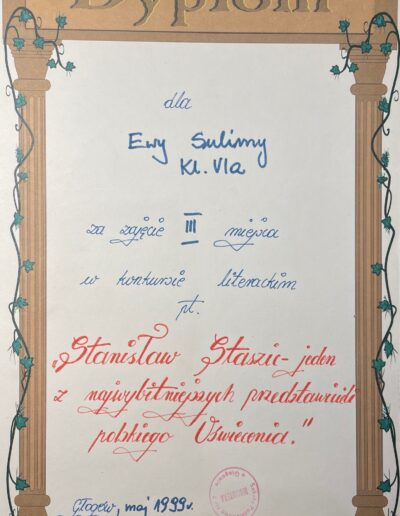 Dyplom
dla
Ewy Sulimy
Kl. VIa
za zajęcie III miejsca
w konkursie literackim
pt.
„Stanisław Staszic - jeden
z najwybitniejszych przedstawicieli
polskiego Oświecenia."
Głogów, maj 1999r.